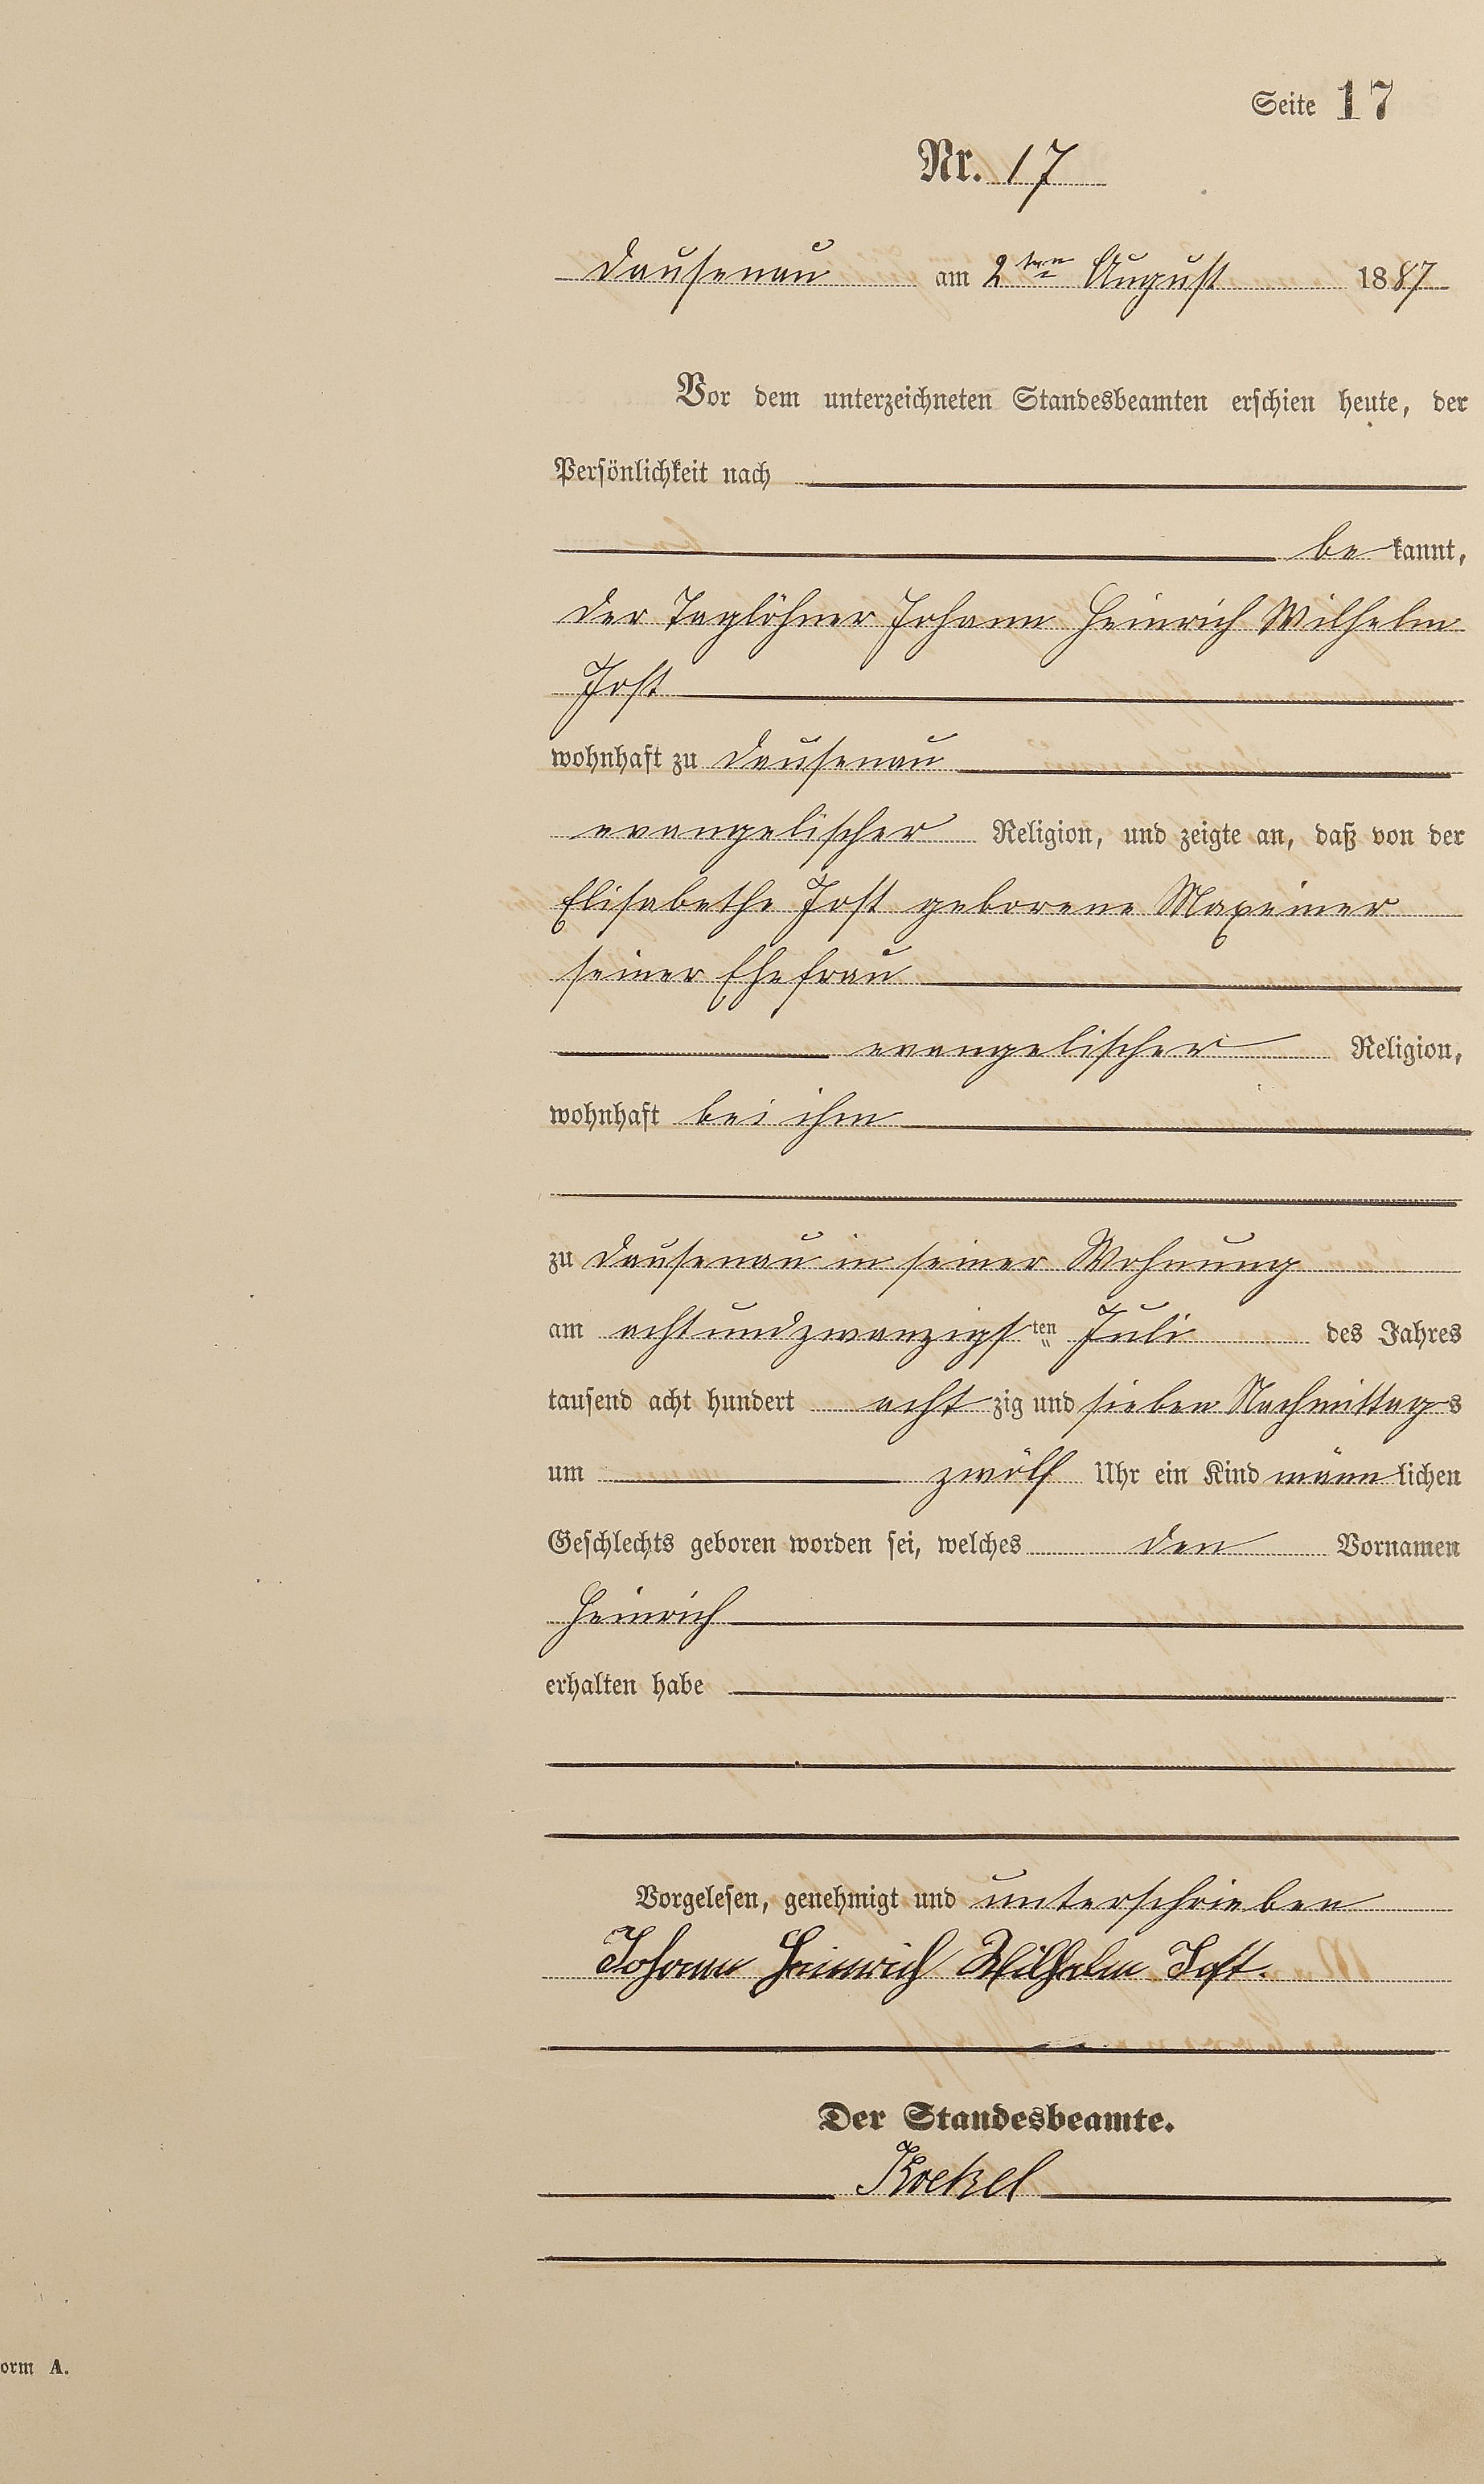 Seite 17
Nr. 17
Dausenau am 2ten August 1887
Vor dem unterzeichneten Standesbeamten erschien heute, der
Persönlichkeit nach
bekannt,
der Taglöhner Johann Heinrich Wilhelm
Jost
wohnhaft zu Dausenau
evangelischer Religion, und zeigte an, daß von der
Elisabethe Jost geborene Maxeiner
seiner Ehefrau
evangelischer Religion,
wohnhaft bei ihm
zu Dausenau in seiner Wohnung
am achtundzwanzigsten Juli des Jahres
tausend acht hundert achtzig und sieben Nachmittags
um zwölf Uhr ein Kind männlichen
Geschlechts geboren worden sei, welches den Vornamen
Heinrich
erhalten habe
Vorgelesen, genehmigt und unterschrieben
Johann Heinrich Wilhelm Jost.
Der Standesbeamte.
orm A.